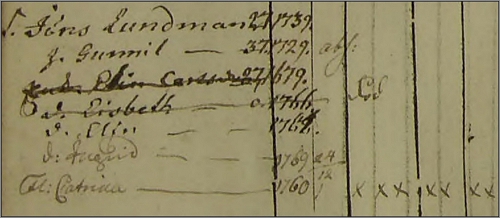 S. Jöns Lundman 27. 1739.
h. Gunnil — 37. 1729. abs:
Enk: Elin Carlsdr 27. 1679.
d. Lisbeth — 1766. död
d. Elin — — 1764.
d: Ingrid — — — 1769 24/12
Fl: Catrina — 1760 x x x x x x x